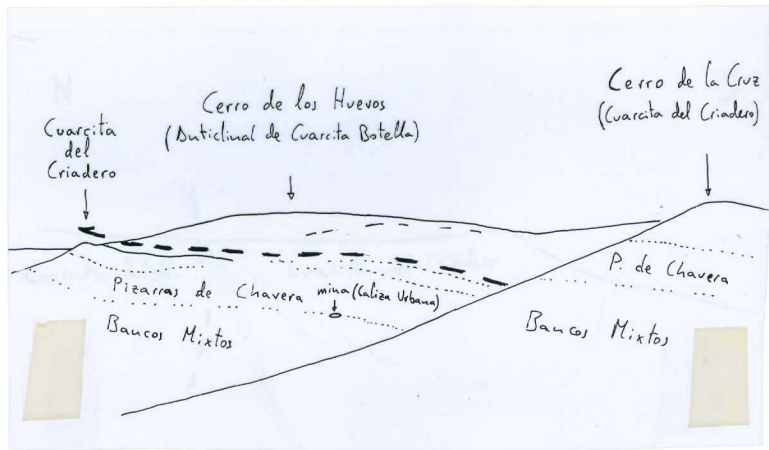 Cuarcita
del
Criadero
Cerro de los Huevos
(Anticlinal de Cuarcita Botella)
Cerro de la Cruz
(Cuarcita del Criadero)
P. de Chavera
Pizarras de Chavera
mina (Caliza Urbana)
Bancos Mixtos
Bancos Mixtos